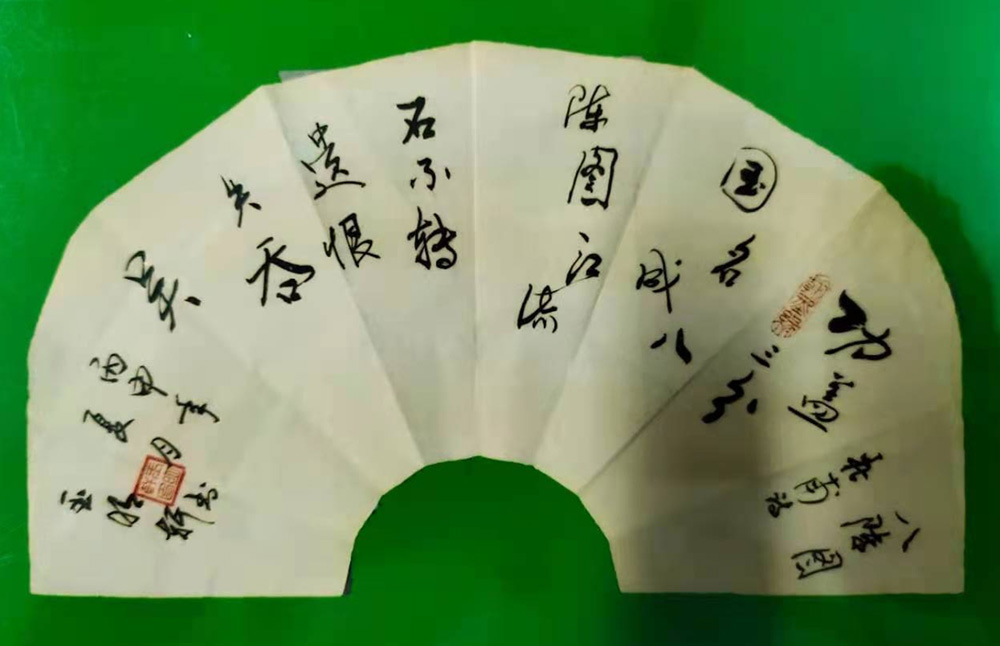 八陣图
杜甫诗
功蓋
三分
国名
成八
陣图
江流
石不转
遗恨
失吞
吴
丙申年
夏月
轩书